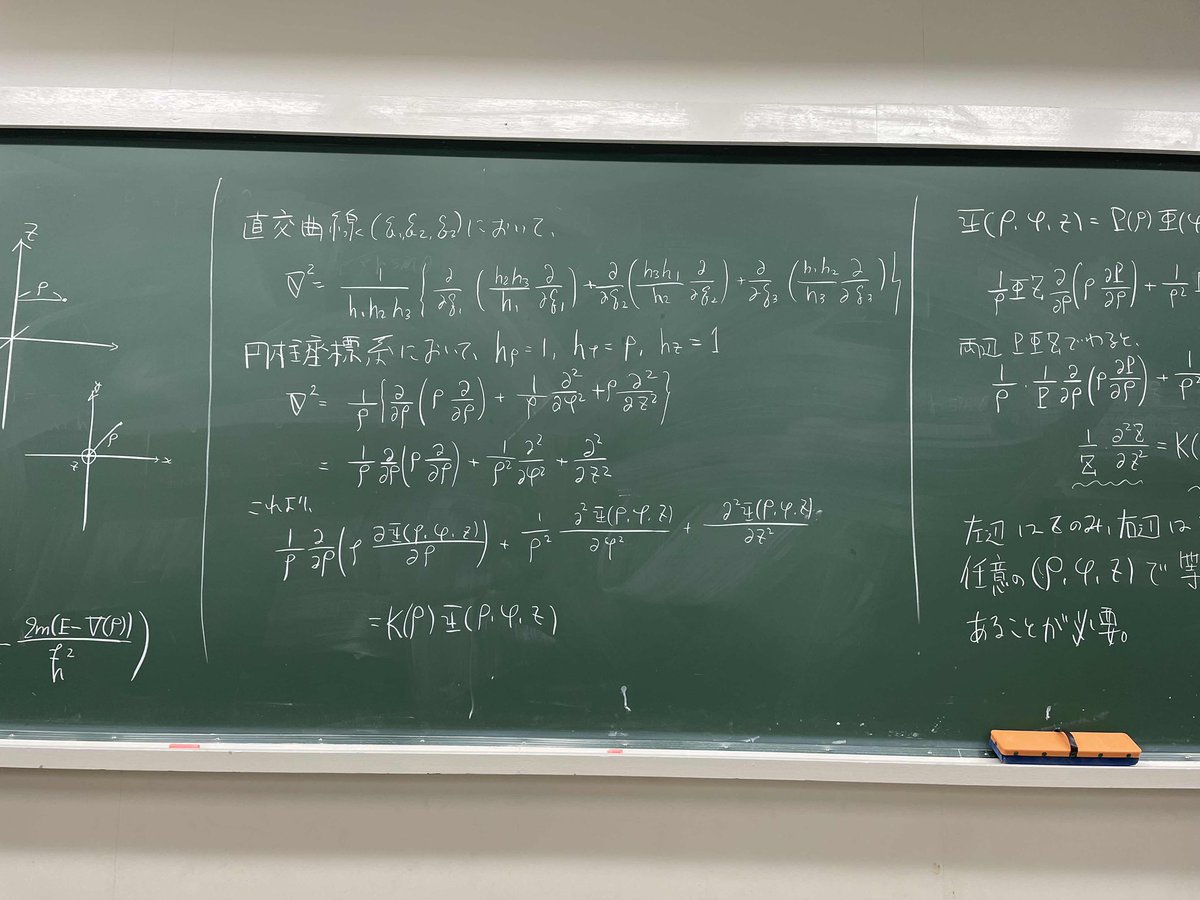 z
ρ
y
ρ
z
x
2m(E-V(ρ))/ħ²)
直交曲線(ξ₁,ξ₂,ξ₂)において、
∇²= 1/(h₁h₂h₃) { ∂/∂ξ₁ (h₂h₃/h₁ ∂/∂ξ₁) + ∂/∂ξ₂ (h₃h₁/h₂ ∂/∂ξ₂) + ∂/∂ξ₃ (h₁h₂/h₃ ∂/∂ξ₃) }
円柱座標系において、hρ=1, hφ=ρ, hz=1
∇²= 1/ρ { ∂/∂ρ (ρ ∂/∂ρ) + 1/ρ ∂²/∂φ² + ρ ∂²/∂z² }
= 1/ρ ∂/∂ρ (ρ ∂/∂ρ) + 1/ρ² ∂²/∂φ² + ∂²/∂z²
これより、
1/ρ ∂/∂ρ (ρ ∂Ψ(ρ,φ,z)/∂ρ) + 1/ρ² ∂²Ψ(ρ,φ,z)/∂φ² + ∂²Ψ(ρ,φ,z)/∂z²
=K(ρ)Ψ(ρ,φ,z)
Ψ(ρ,φ,z)=P(ρ)Φ(φ
1/ρ ΦZ ∂/∂ρ (ρ ∂P/∂ρ) + 1/ρ²
両辺PΦZでわると、
1/ρ · 1/P ∂/∂ρ (ρ ∂P/∂ρ) + 1/ρ²
1/Z ∂²Z/∂z² = K(
左辺はZのみ、右辺は
任意の(ρ,φ,z)で等
あることが必要。